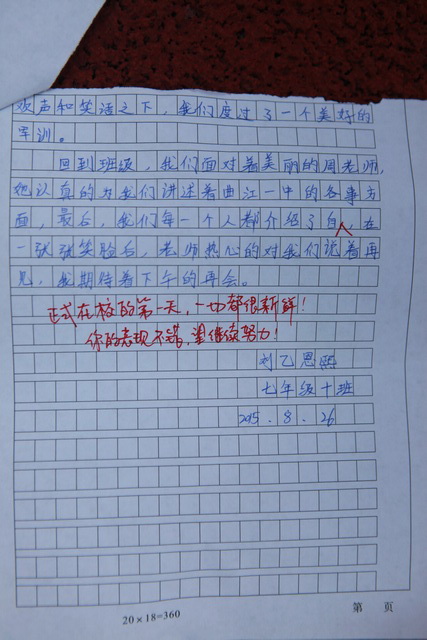 欢声和笑语之下，我们度过了一个美好的
军训。
回到班级，我们面对着美丽的周老师，
她认真的为我们讲述着曲江一中的各事方
面，最后，我们每一个人都介绍了自，在
一张张笑脸后，老师热心的对我们说着再
见，我期待着下午的再会。
正式在校的第一天，一切都很新鲜！
你的表现不错，望继续努力！
刘乙恩熙
七年级十班
2015.8.26
20×18=360
第 页